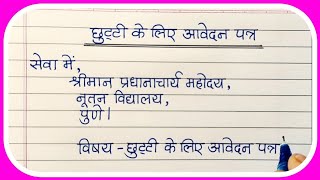 छुट्टी के लिए आवेदन पत्र
सेवा में,
श्रीमान प्रधानाचार्य महोदय,
नूतन विद्यालय,
पुणे।
विषय - छुट्टी के लिए आवेदन पत्र